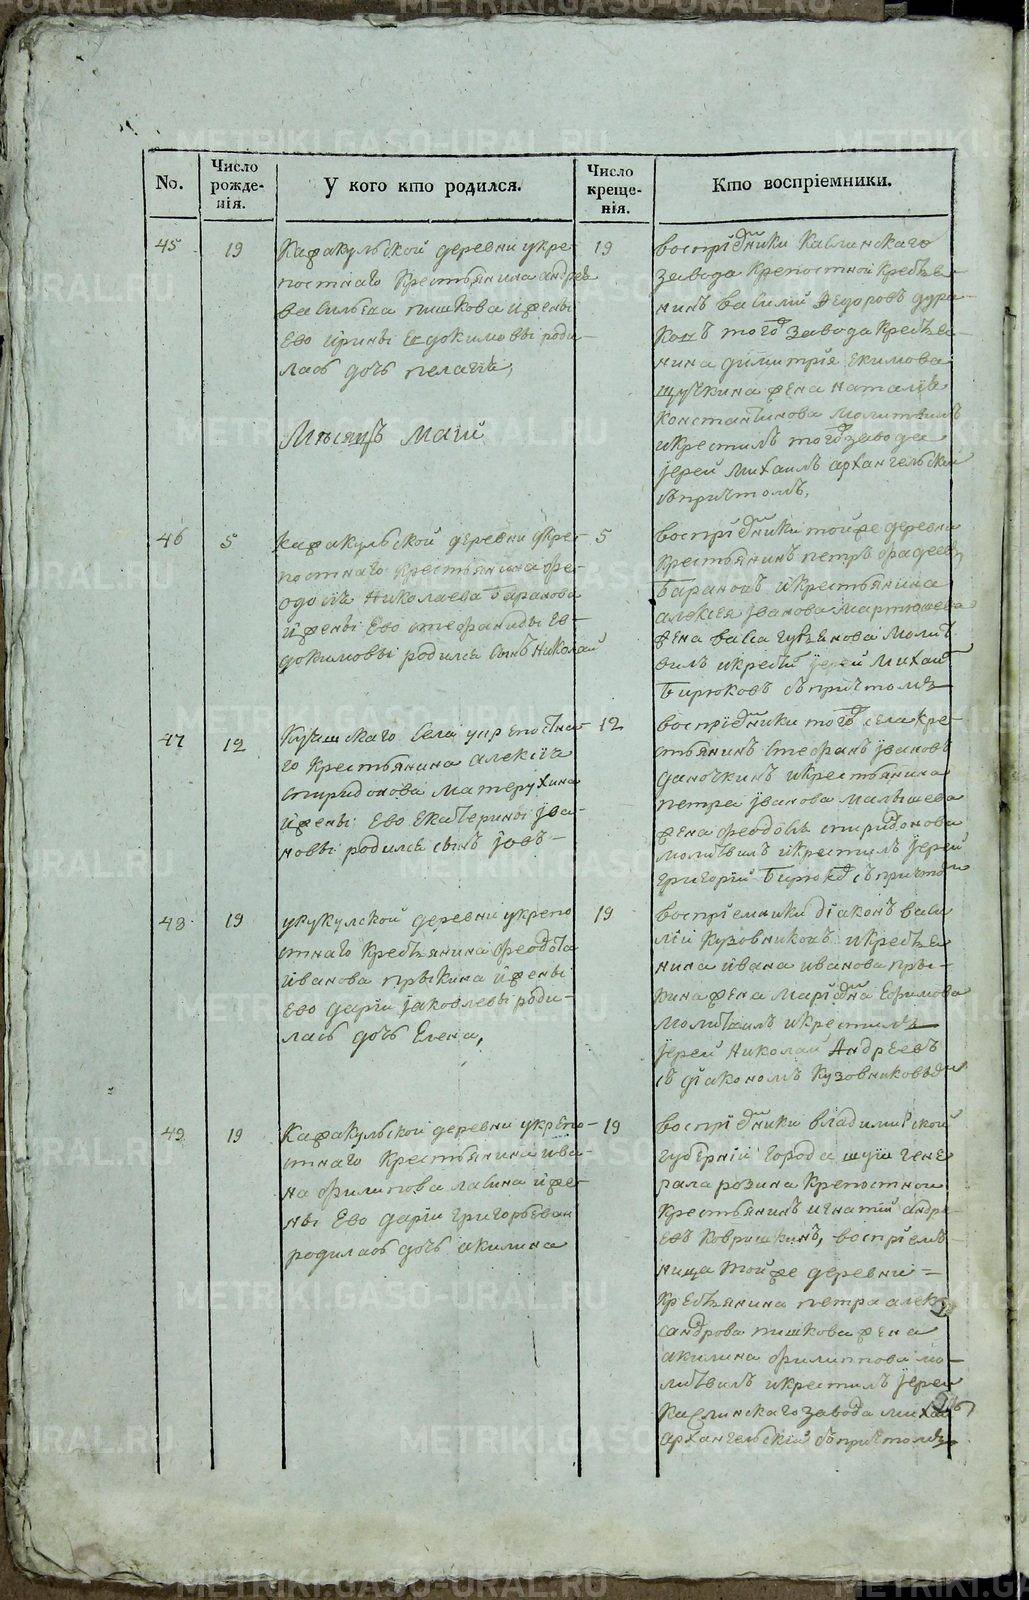 No.
Число рожде-нія.
У кого кто родился.
Число креще-нія.
Кто воспріемники.
45
19
Каракульской деревни укре-
постнаго Крестьянина андрея
васильева пишкова и жены
Ево ирины Евдокимовы роди-
лась дочь пелагія,
19
воспріемники Каслинскаго
завода Крепостной Кресть
нинъ василий Федоровъ
того завода
нина димитрія екимова
жена наталія
Константинова молитвилъ
и крестилъ того завода
Іерей михаилъ архангельский
съ причтомъ,
Мѣсяцъ Маий
46
5
Каракульской деревни укре-
постнаго Крестьянина фе-
Николаева баранова
и жены Ево стефаниды Ев-
докимовы родился сынъ Николай
5
воспріемники той же деревни
Крестьянинъ петръ фадеевъ
барановъ и крестьянина
алексея Іванова мартюшева
жена васса молит
вилъ и крести Іерей михаи
бирюковъ съ причтомъ
47
12
Села укрепостна
го Крестьянина алексія
спиридонова матерухина
и жены Ево Екатерины Іва-
новы родился сынъ Іовъ
12
воспріемники того села кре-
стьянинъ стефанъ Івановъ
даночкинъ и крестьянина
петра Іванова малышева
жена феодося спиридонова
молитвилъ и крестилъ Іерей
григорій съ причтом
48
19
деревни укрепо
стнаго феодота
иванова прыкина и жены
Ево дарьи Іаковлевы роди-
лась дочь Елена,
19
воспріемники діаконъ васи
лій Кузовниковъ и
нина ивана иванова пры-
кина жена Ефимова
молитвилъ и крестилъ
Іерей Николай Андреевъ
съ діакономъ Кузовниковым
49
19
Каракульской деревни укрепо-
стнаго Крестьянина ива-
на филипова лавина и же-
ны Ево дарьи григорьеван
родилась дочь акилина
19
воспріемники владимирской
губерніи города шуии гене
рала розина Крепостной
Крестьянинъ игнатий андре
евъ Ковришкинъ, воспріем
ница той же деревни =
петра алек
сандрова пишкова жена
акилина филиппова мо-
литвилъ и крестилъ Іерей
Каслинскаго завода михаи
архангельскій съ причтомъ
METRIKI.GASO-URAL.RU